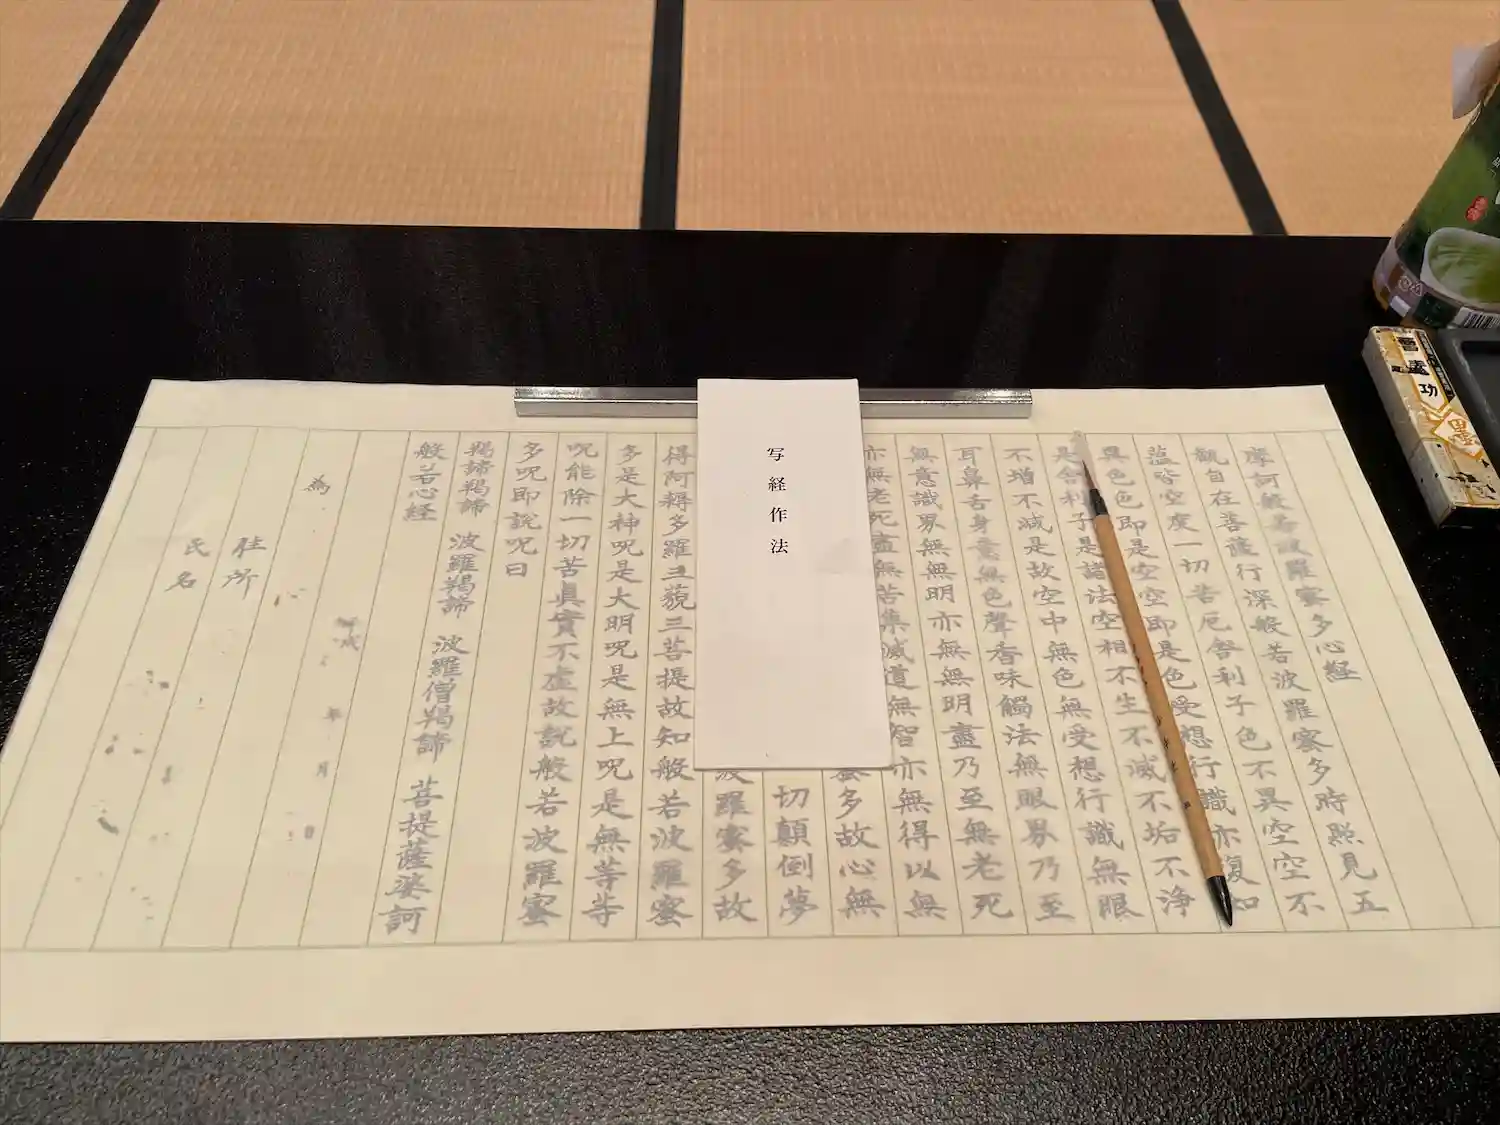 摩訶般若波羅蜜多心経
観自在菩薩行深般若波羅蜜多時照見五
蘊皆空度一切苦厄舎利子色不異空空不
異色色即是空空即是色受想行識亦復如
是舎利子是諸法空相不生不滅不垢不浄
不増不減是故空中無色無受想行識無眼
耳鼻舌身意無色聲香味觸法無眼界乃至
無意識界無無明亦無無明盡乃至無老死
亦無老死盡無苦集滅道無智亦無得以無
蜜多故心無
切顛倒夢
波羅蜜多故
得阿耨多羅三藐三菩提故知般若波羅蜜
多是大神呪是大明呪是無上呪是無等等
呪能除一切苦眞實不虚故説般若波羅蜜
多呪即説呪曰
羯諦羯諦 波羅羯諦 波羅僧羯諦 菩提薩婆訶
般若心経
平成 年 月 日
為
住所
氏名
写経作法
功
墨